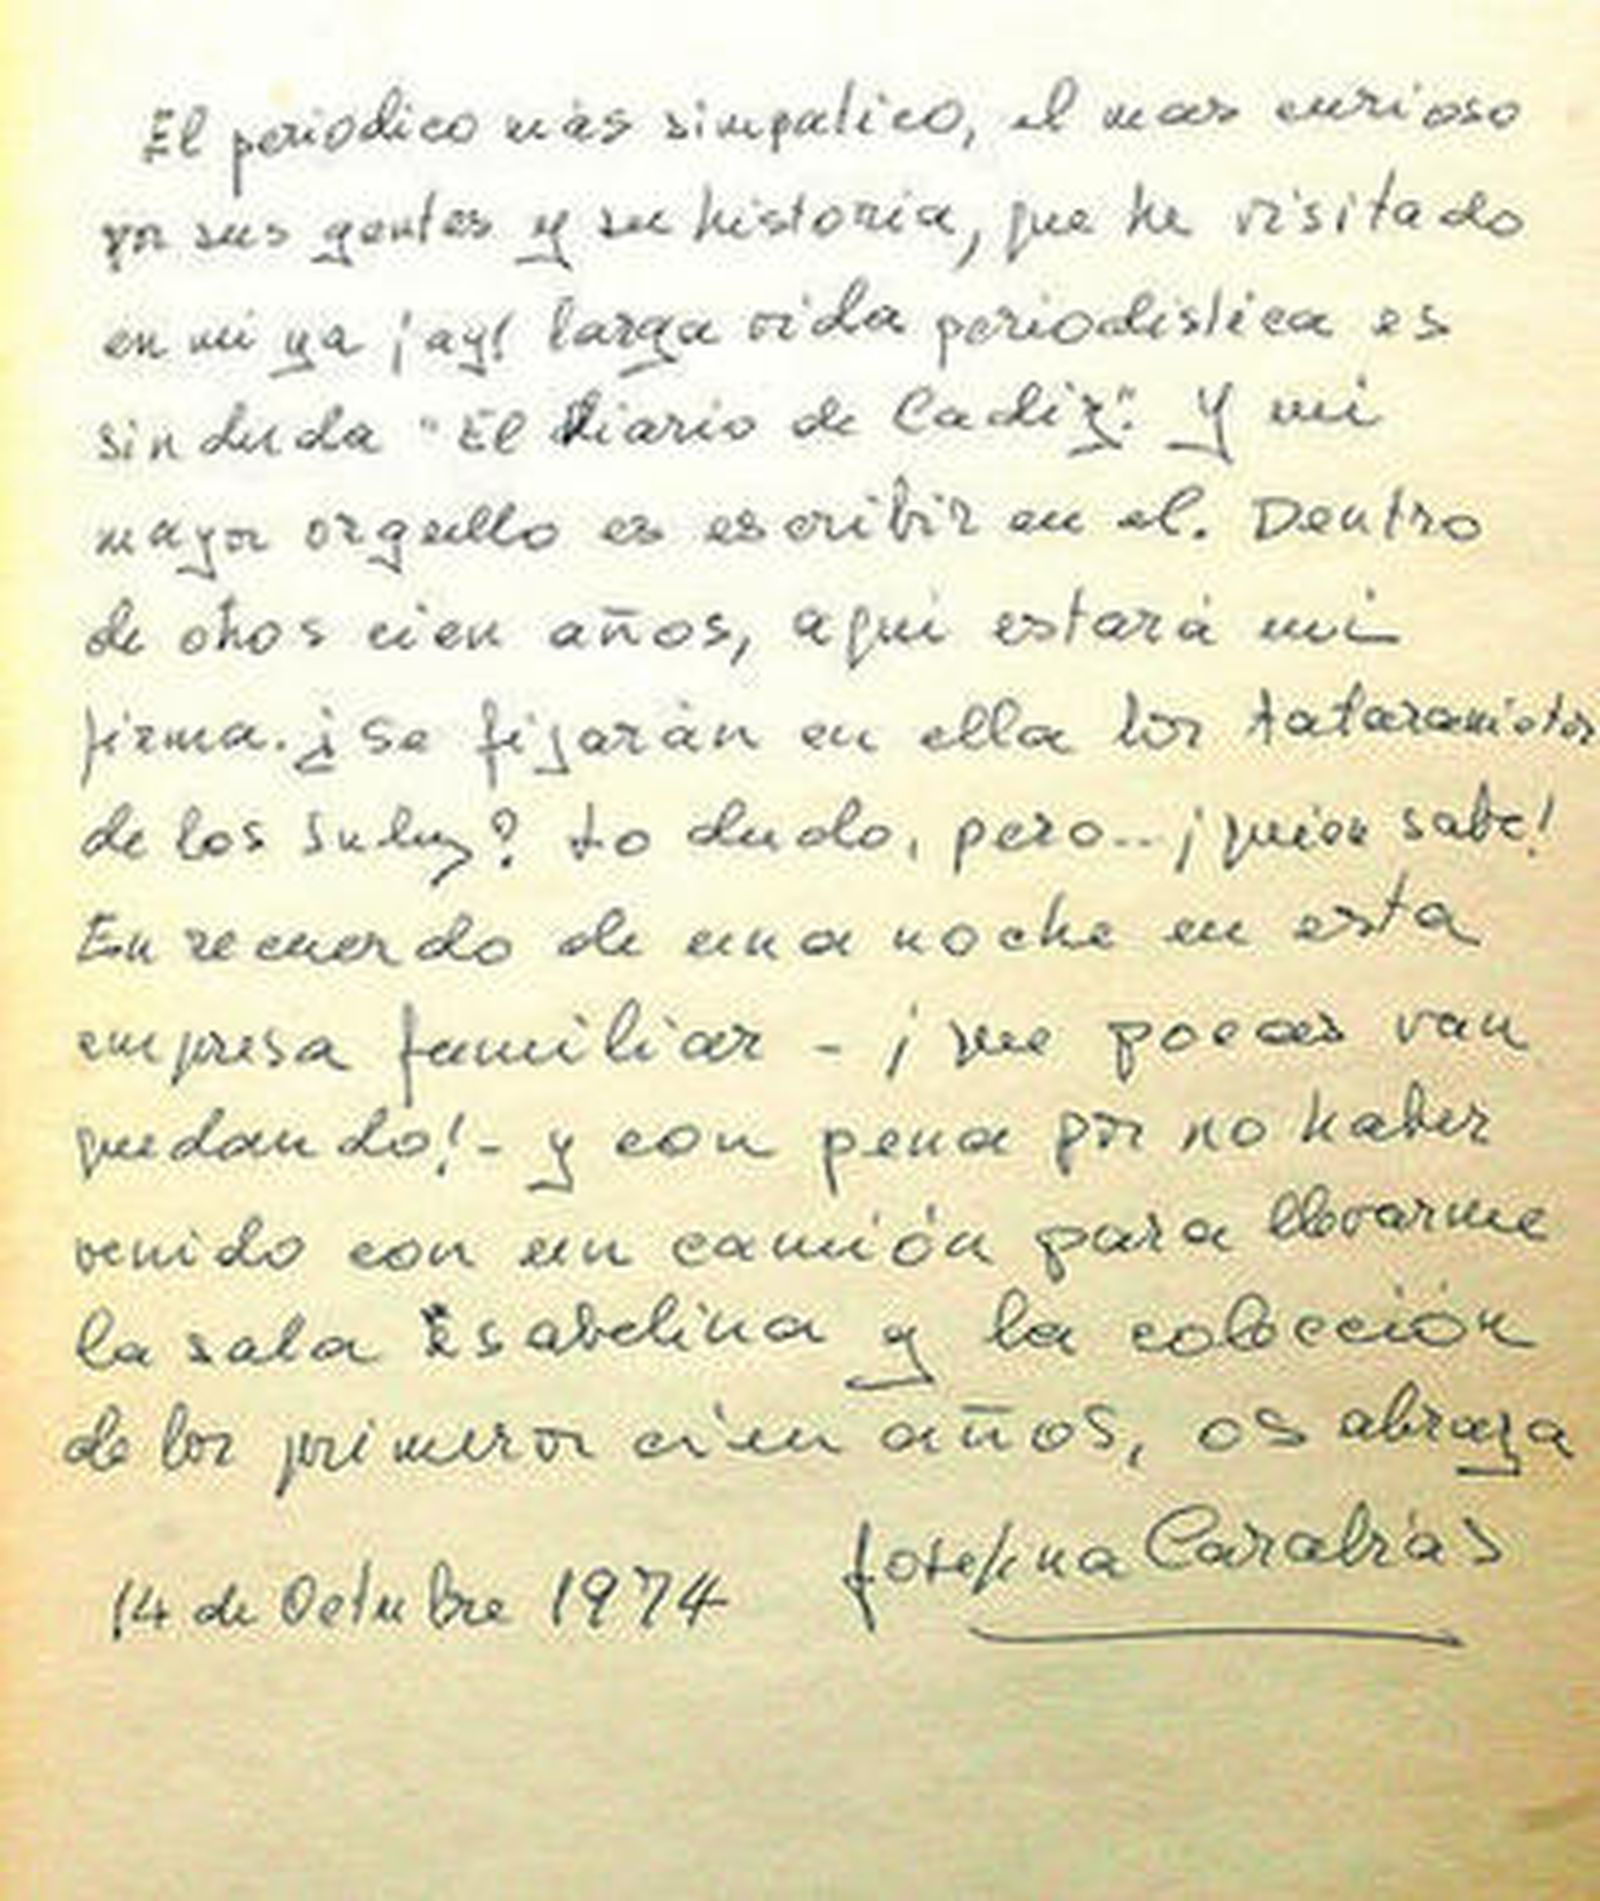 El periodico más simpatico, el mas curioso
por sus gentes y su historia, que he visitado
en mi ya ¡ay! larga vida periodistica es
sin duda "El Diario de Cadiz". Y mi
mayor orgullo es escribir en el. Dentro
de otros cien años, aqui estará mi
firma. ¿Se fijarán en ella los tataranietos
de los ? Lo dudo, pero... ¡quien sabe!
En recuerdo de una noche en esta
empresa familiar - ¡que pocas van
quedando! - y con pena por no haber
venido con un camión para llevarme
la sala Isabelina y la colección
de los primeros cien años, os abraza
Josefina Carabias
14 de Octubre 1974